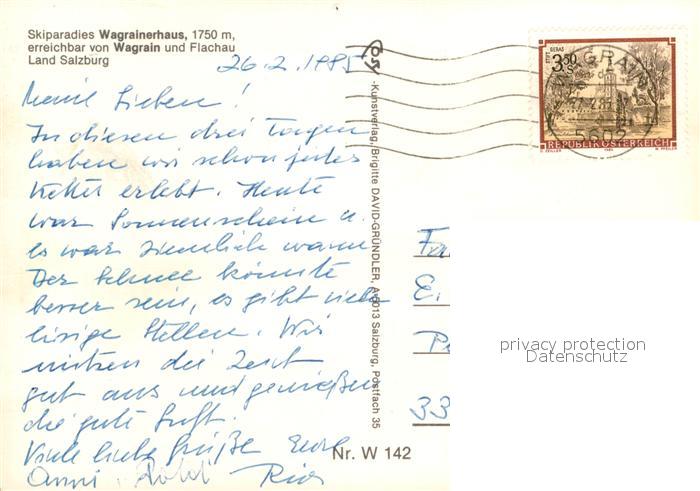 Skiparadies Wagrainerhaus, 1750 m,
erreichbar von Wagrain und Flachau
Land Salzburg
26.2.1985
Meine Lieben!
In diesen drei Tagen
haben wir schon jedes
Wetter erlebt. Heute
war Sonnenschein u.
es war ziemlich warm
Der Schnee könnte
besser sein, es gibt viele
eisige Stellen. Wir
nützen die Zeit
gut aus und genießen
die gute Luft.
Viele liebe Grüße Eure
Kunstverlag, Brigitte DAVID-GRÜNDLER, A-5013 Salzburg, Postfach 35
Nr. W 142
GERAS
3.50
S
WAGRAIN
5602
REPUBLIK ÖSTERREICH
E.
33
privacy protection
Datenschutz